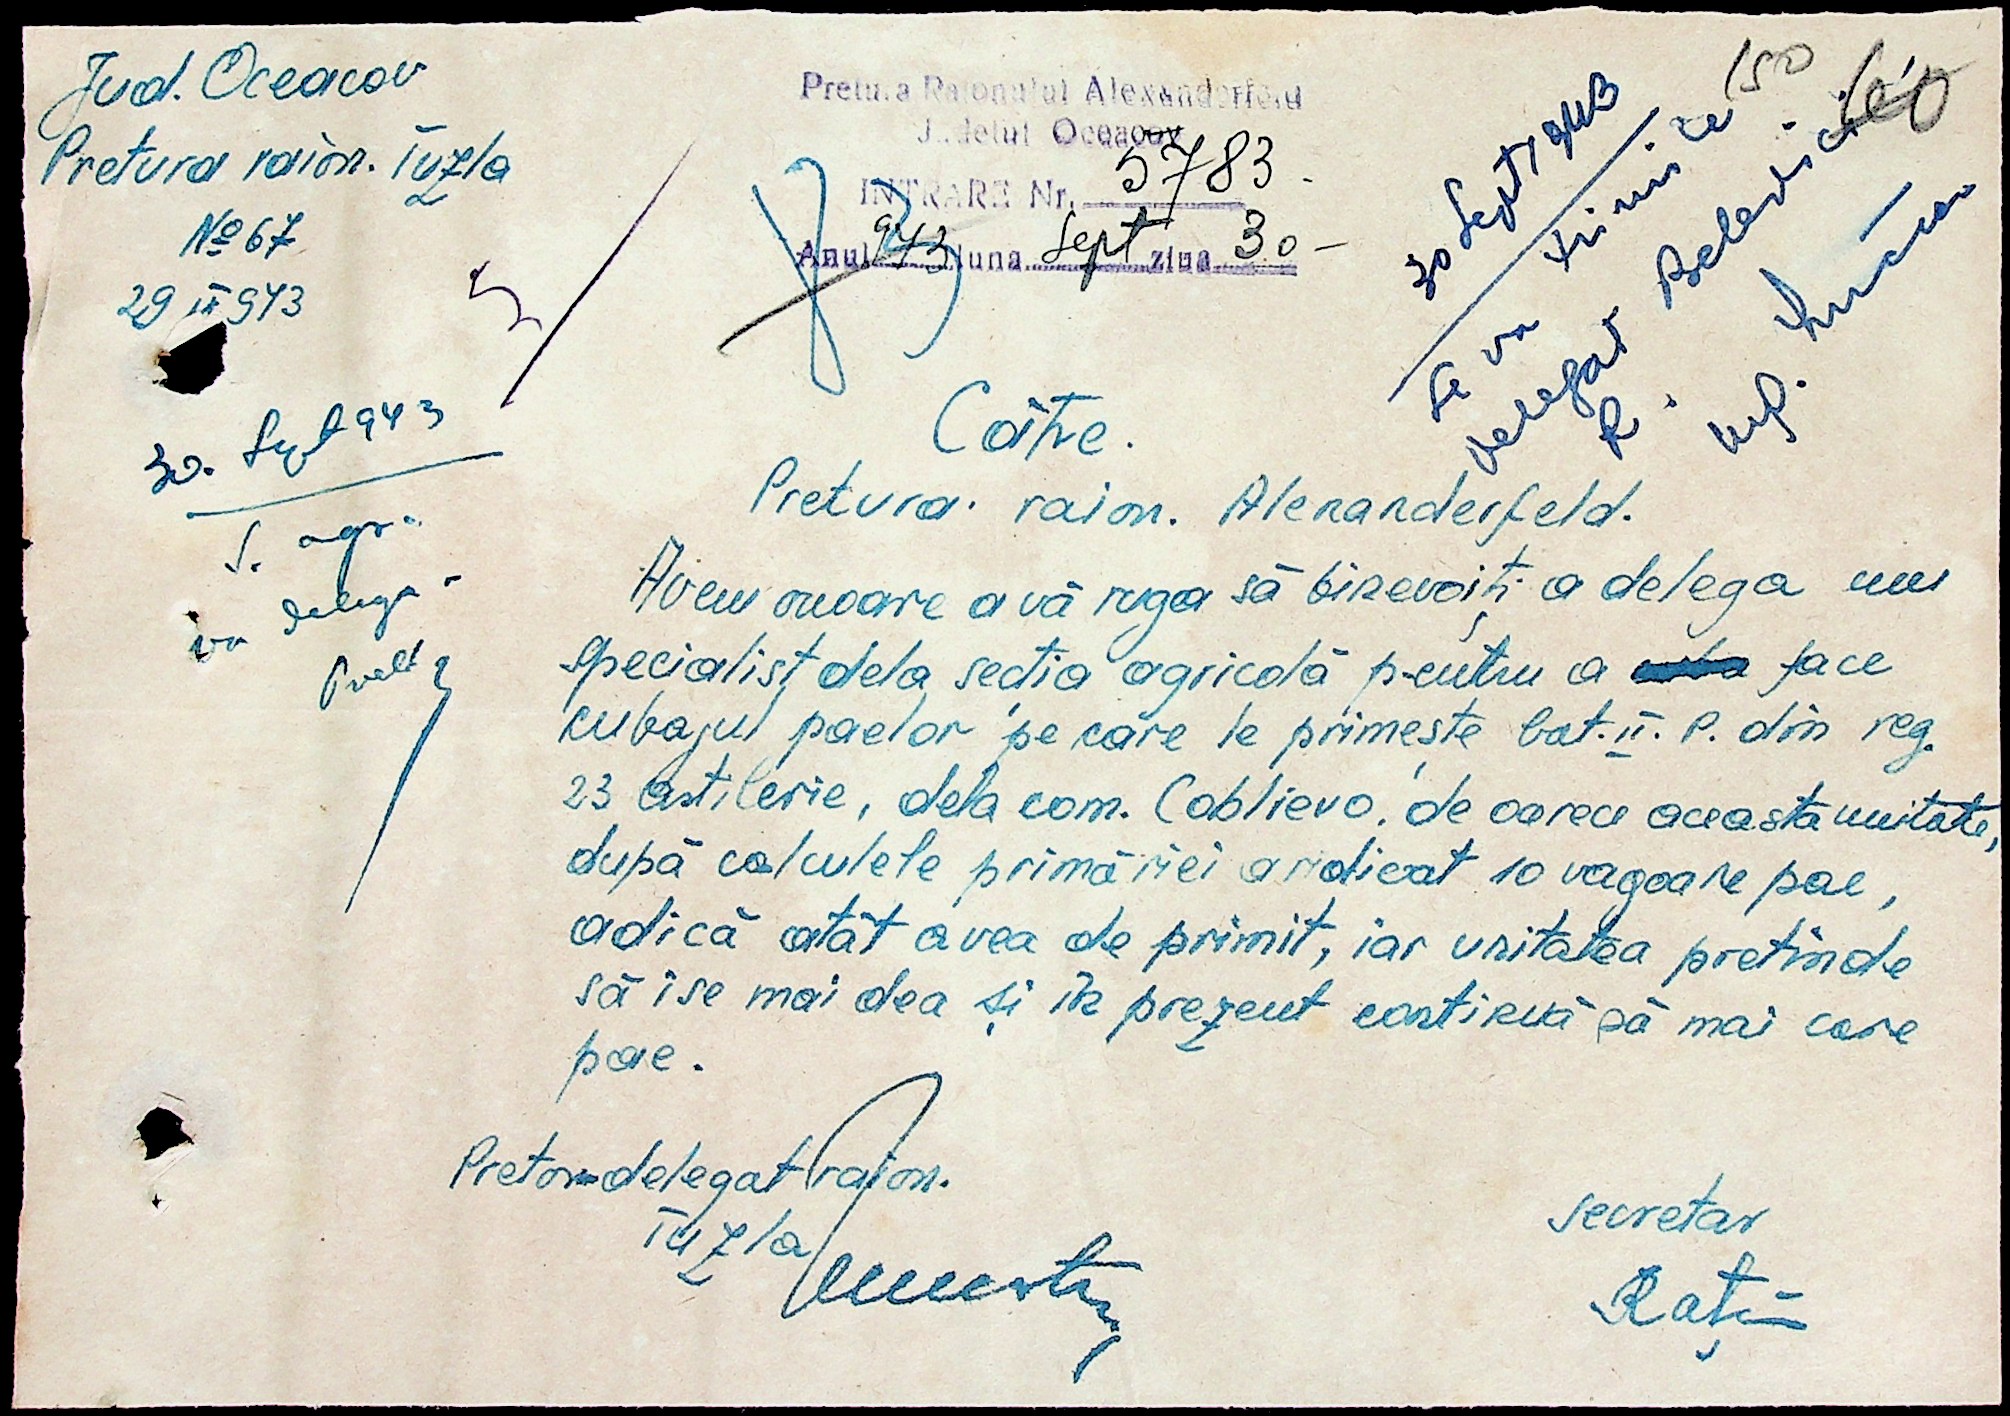 Jud. Oceacov
Pretura raion. Tuzla
No 67
29 IX 943
Pretura Raionului Alexanderfeld
Judetul Oceacov
INTRARE Nr. 5783.
Anul 943 luna Sept ziua 30-
150
30 Sept 1943
Se va trimite
delegat
R.
30. Sept 943
S. agr.
va delega
Către.
Pretura. raion. Alexanderfeld.
Avem onoare a vă ruga să binevoiți a delega un
specialist dela secția agricolă pentru a face
cubajul paelor pe care le primește bat. II. P. din reg.
23 artilerie, dela com. Coblievo, de oarece aceasta unitate,
după calculele primăriei a ridicat 10 vagoane pae,
adică atât avea de primit, iar unitatea pretinde
să i se mai dea și în prezent continuă să mai care
pae.
Pretor delegat raion.
Tuzla
secretar
Rațiu